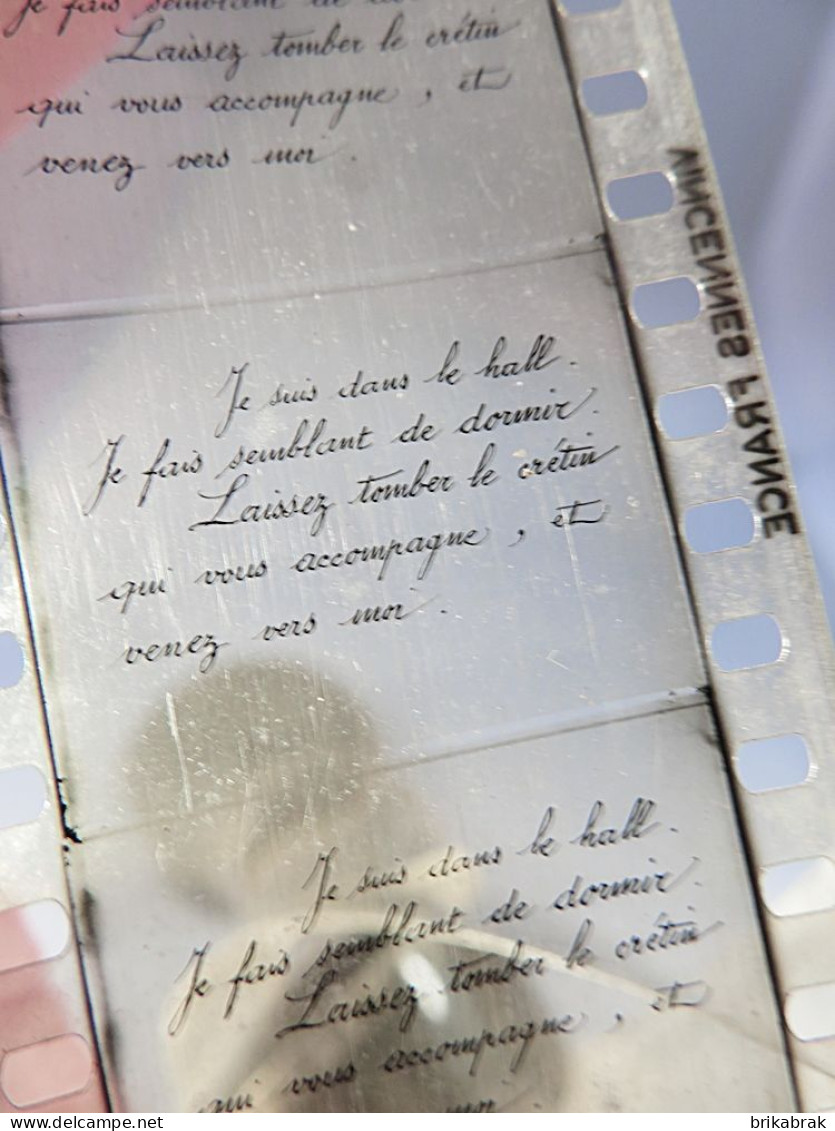 Je fais semblant de
Laissez tomber le crétin
qui vous accompagne, et
venez vers moi.
Je suis dans le hall.
Je fais semblant de dormir.
Laissez tomber le crétin
qui vous accompagne, et
venez vers moi.
Je suis dans le hall.
Je fais semblant de dormir.
Laissez tomber le crétin
qui vous accompagne, et
moi
VINCENNES FRANCE
brikabrak